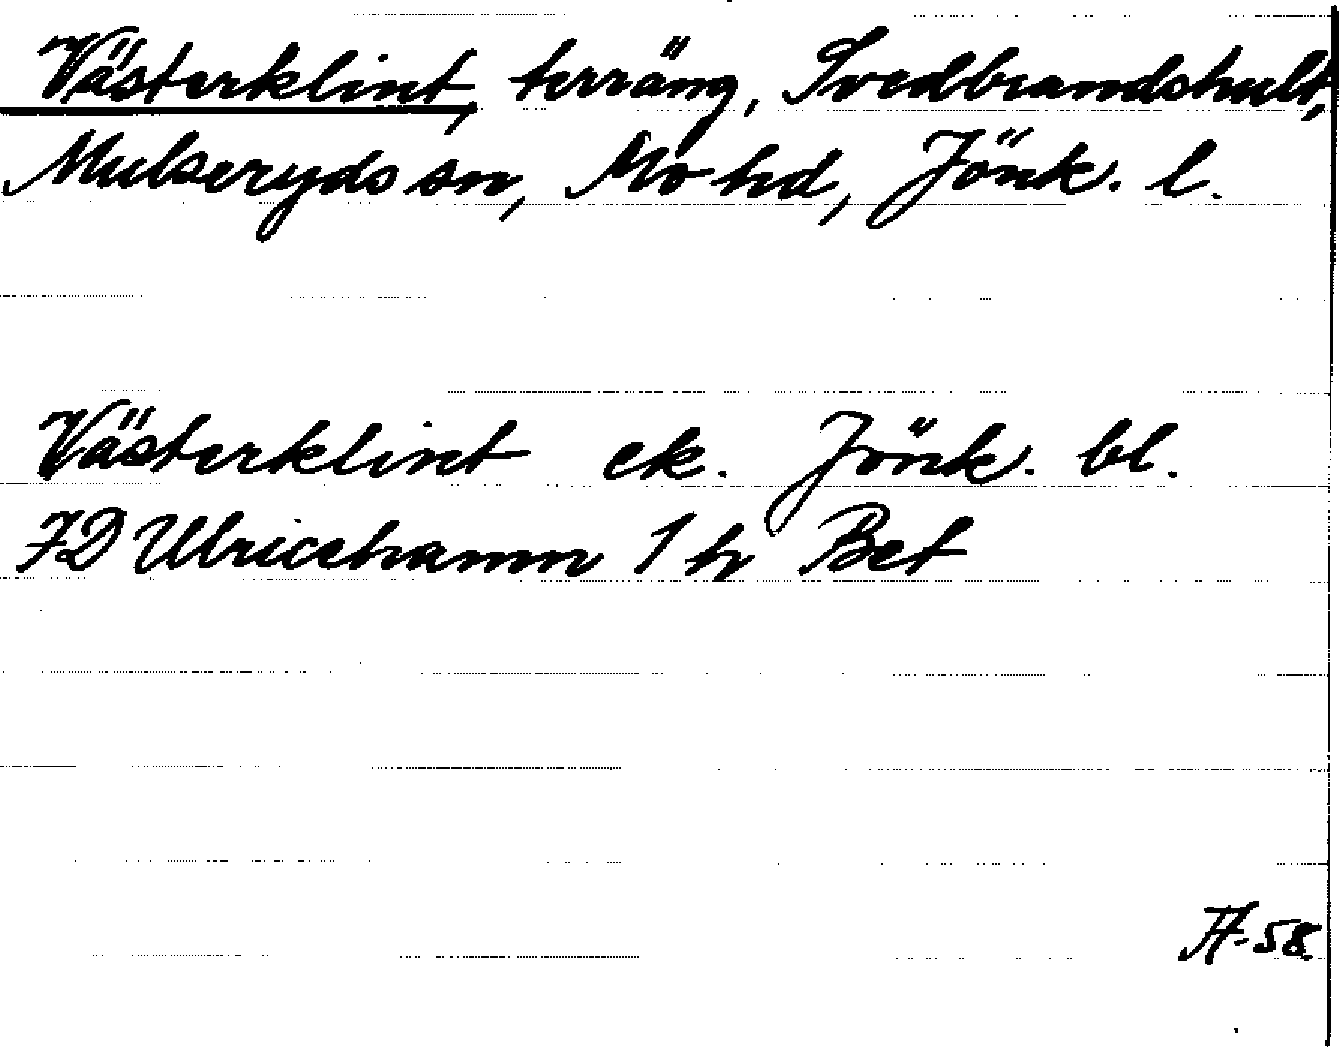 Västerklint, terräng, Svedbrandshult,
Mulseryds sn, Mo hd, Jönk. l.
Västerklint ek. Jönk. bl.
7D Ulricehamn 1 h Bet
A-58